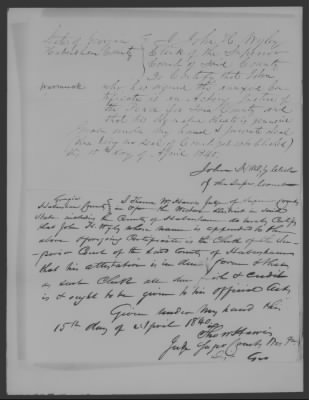 State of Georgia } I, John H. Wyly
Habersham County } Clerk of the Superior
Court of said County
Do Certify that John
Warmack who has signed the annexed Cer-
tificate is an Acting Justice of
the Peace for said County and
that his Signature thereto is genuine
Given under my hand & private Seal
(there being no Seal of Court yet provided)
this 15th day of April 1840.
John H. Wyly Clerk
of the Supr Court
Georgia
Habersham County I, Thos W. Harris Judge of
in open the Western District in said
State including the County of Habersham do hereby Certify
that John H. Wyly whose name is appended to the
above & foregoing Certificate is the Clerk of the Su-
perior Court of the said County of Habersham
that his attestation is in due form & that
as such Clerk all due & credit
is & ought to be given to his official acts
Given under my hand this
15th day of April 1840
Thos W Harris
Judge Supr Courts Wes
Geo